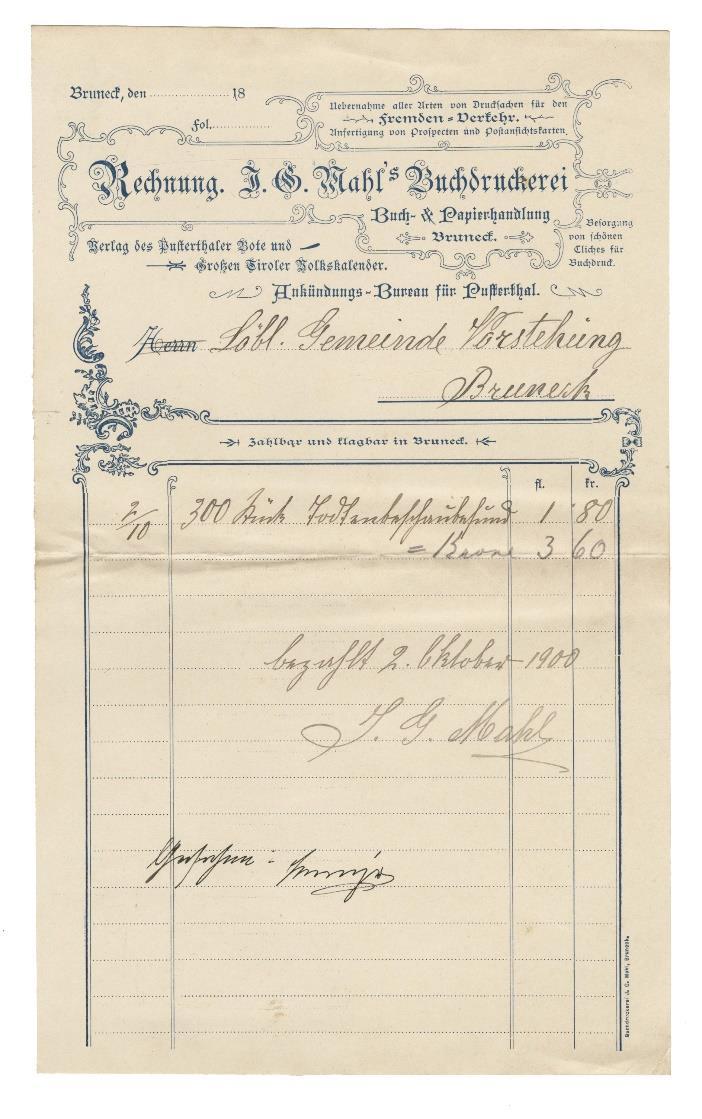 Bruneck, den 18
Fol.
Uebernahme aller Arten von Drucksachen für den
Fremden-Verkehr.
Anfertigung von Prospecten und Postansichtskarten.
Rechnung. J. G. Mahl's Buchdruckerei
Buch- & Papierhandlung
Bruneck.
Besorgung
von schönen
Cliches für
Buchdruck.
Verlag des Pusterthaler Bote und
Großen Tiroler Volkskalender.
Ankündungs-Bureau für Pusterthal.
Herrn Löbl. Gemeinde Vorstehung
Bruneck
Zahlbar und klagbar in Bruneck.
fl. kr.
2/10 300 Stück Todtenbeschaubefund 1 80
= Krone 3 60
bezahlt 2. Oktober 1900
J. G. Mahl
Gesehen:
Buchdruckerei J. G. Mahl, Bruneck.